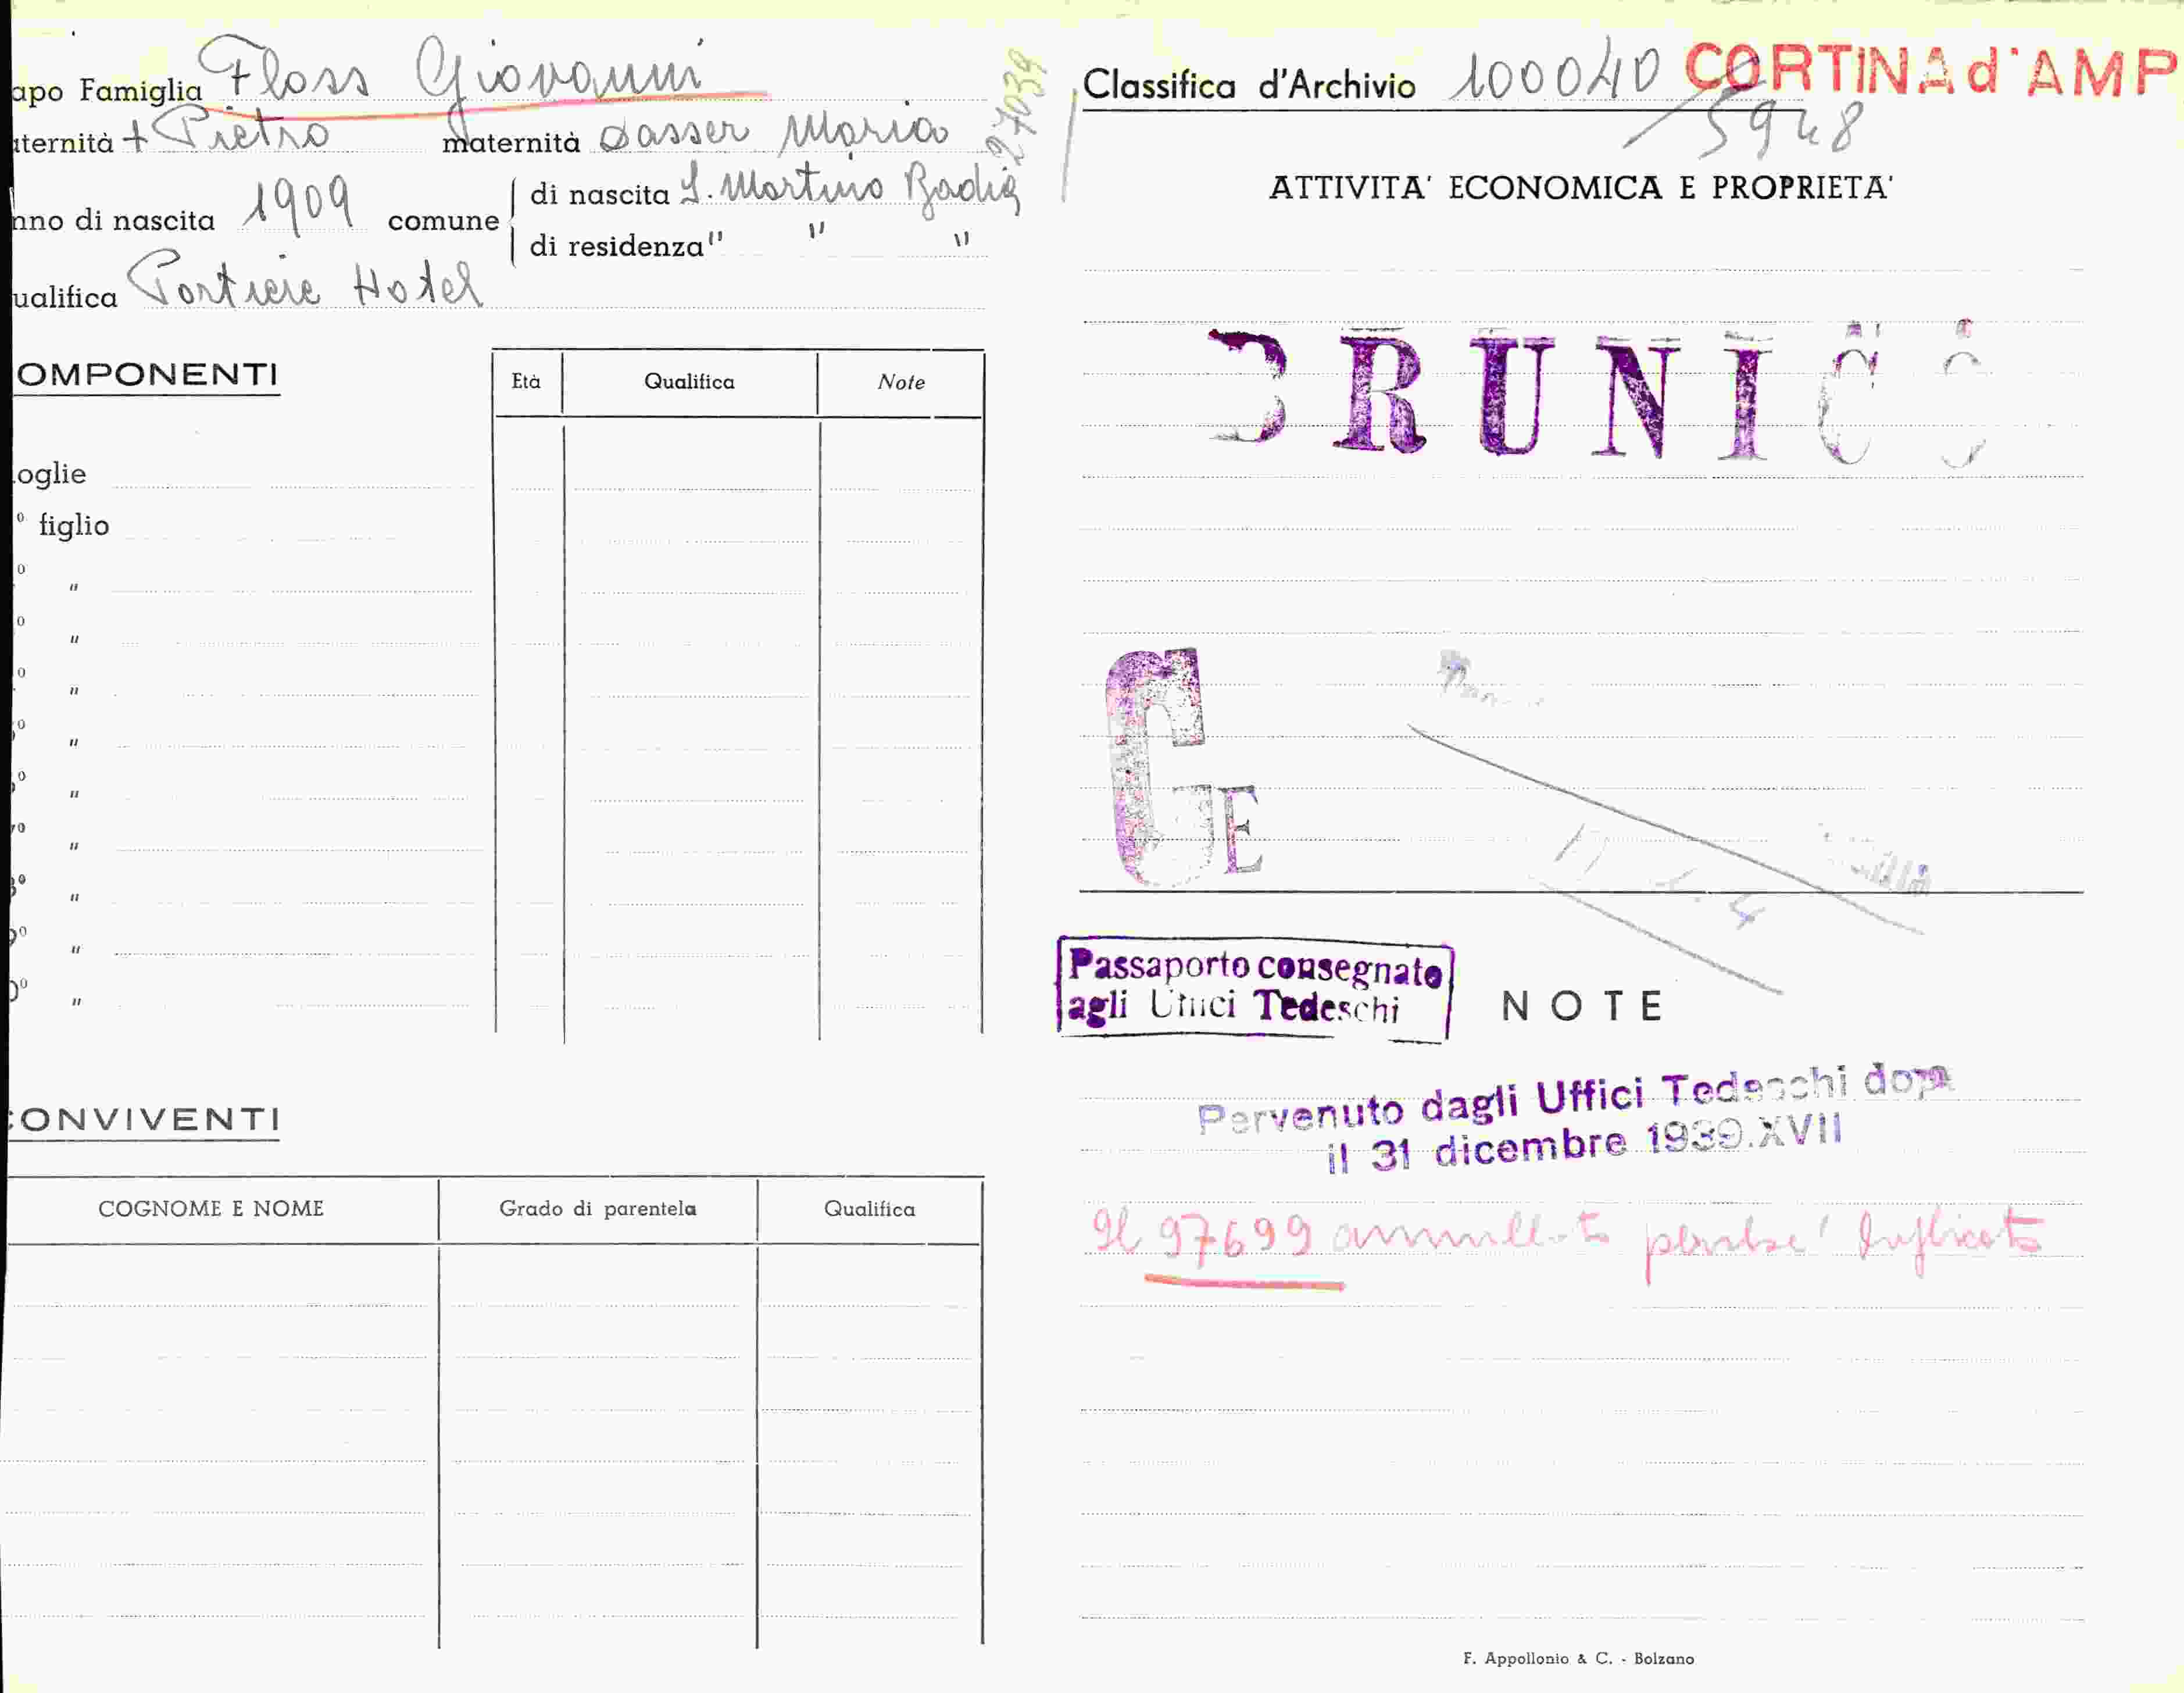 apo Famiglia Floss Giovanni
aternità + Pietro maternità Sasser Maria
27039
nno di nascita 1909 comune di nascita S. Martino Badia
di residenza " " "
ualifica Portiere Hotel
OMPONENTI
Età Qualifica Note
oglie
° figlio
° "
° "
° "
° "
° "
7° "
8° "
9° "
0° "
CONVIVENTI
COGNOME E NOME Grado di parentela Qualifica
Classifica d'Archivio 100040 CORTINA d'AMP
5948
ATTIVITA' ECONOMICA E PROPRIETA'
BRUNICO
GE
Passaporto consegnato
agli Uffici Tedeschi
NOTE
Pervenuto dagli Uffici Tedeschi dopo
il 31 dicembre 1939.XVII
Il 97699 annullato perché duplicato
F. Appollonio & C. - Bolzano